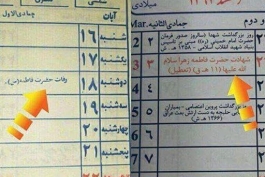 جمادی الاول
آبان
شنبه ۱۶
یکشنبه ۱۷
دوشنبه ۱۸
وفات حضرت فاطمه(س)
سه‌شنبه ۱۹
چهارشنبه ۲۰
پنجشنبه ۲۱
میلادی
جمادی الثانیه Mar.
و دوم
2 ۲
روز بزرگداشت شهدا (سالروز صدور فرمان
حضرت امام خمینی (ره) مبنی بر تأسیس
بنیاد شهید انقلاب اسلامی - ۱۳۵۸ ه‍.ش)
3 ۳
شهادت حضرت فاطمه زهرا سلام
الله علیها (۱۱ ه‍.ق) (تعطیل)
4
5 ۵
روز بزرگداشت پروین اعتصامی - بمباران
6
7 ۷